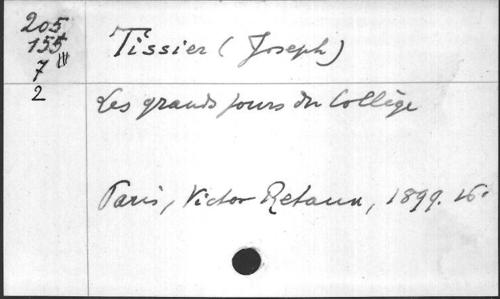 205
155
7 III
2
Tissier (Joseph)
Les grands jours du Collège
Paris, Victor Retaux, 1899. 16°